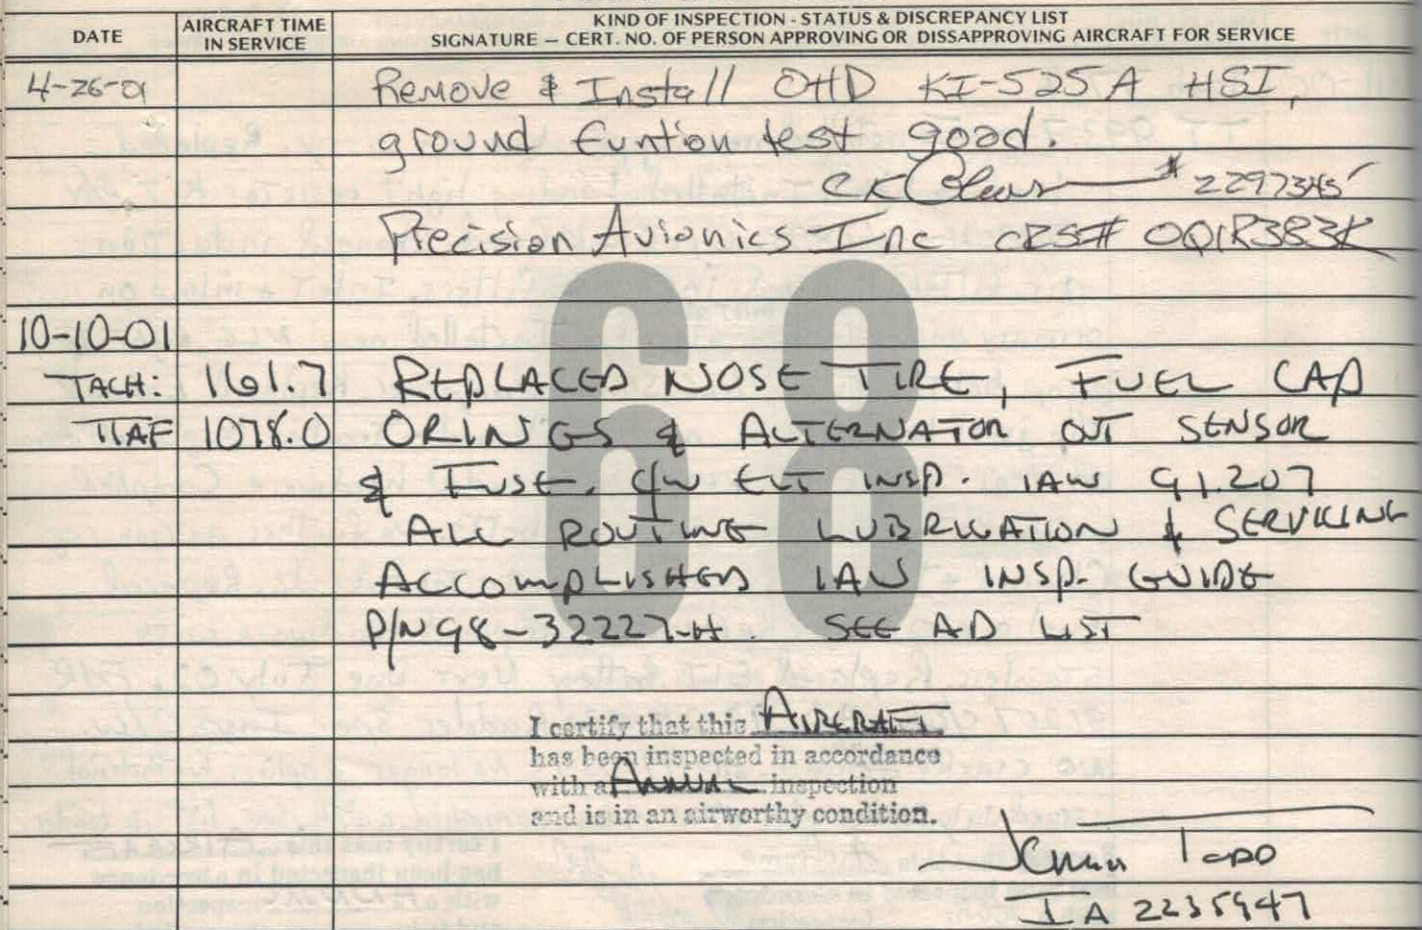 DATE
AIRCRAFT TIME
IN SERVICE
KIND OF INSPECTION - STATUS & DISCREPANCY LIST
SIGNATURE — CERT. NO. OF PERSON APPROVING OR DISSAPPROVING AIRCRAFT FOR SERVICE
4-26-01 Remove & Install OHD KI-525A HSI,
ground funtion test good.
# 2297345
Precision Avionics Inc CRS# OQ1R383K
68
10-10-01
TACH: 161.7 REPLACED NOSE TIRE, FUEL CAP
TTAF 1078.0 ORINGS & ALTERNATOR OUT SENSOR
& FUSE. C/W ELT INSP. IAW 91.207
ALL ROUTINE LUBRICATION & SERVICING
ACCOMPLISHED IAW INSP. GUIDE
P/N 98-32227-H. SEE AD LIST
I certify that this AIRCRAFT
has been inspected in accordance
with a ANNUAL inspection
and is in an airworthy condition.
IA 2235947